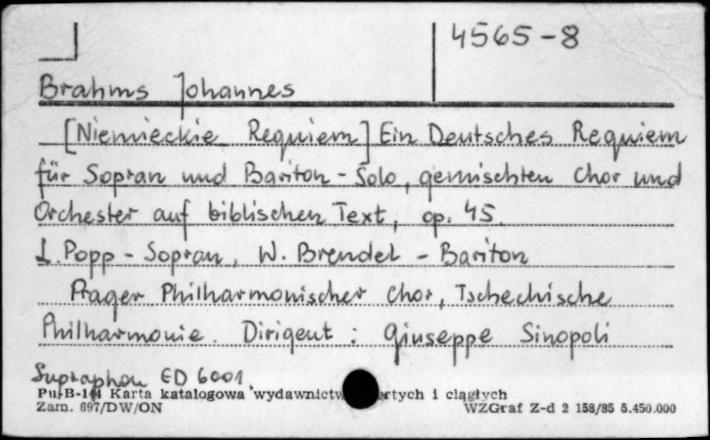 4565-8
Brahms Johannes
[Niemieckie Requiem] Ein Deutsches Requiem
für Sopran und Bariton-Solo, gemischten Chor und
Orchester auf biblischen Text, op. 45.
L. Popp - Sopran, W. Brendel - Bariton
Prager Philharmonischer Chor, Tschechische
Philharmonie. Dirigent: Giuseppe Sinopoli
Supraphon ED 6001.
Pu-B-141 Karta katalogowa wydawnictw
ciągłych
Zam. 697/DW/ON WZGraf Z-d 2 158/85 5.450.000